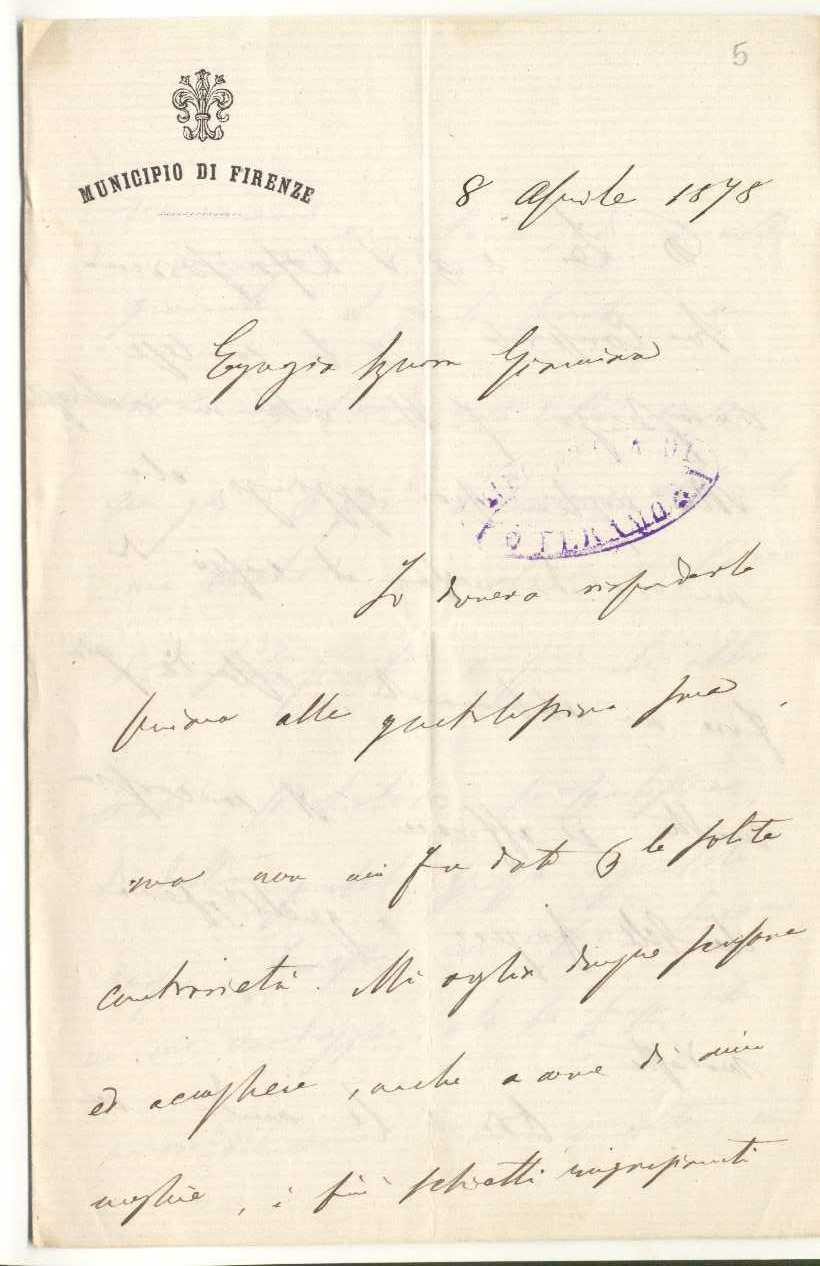 5
MUNICIPIO DI FIRENZE
8 Aprile 1878
Egregia Signora Giannina
Io doveva risponderle
prima alla gentilissima sua,
ma non mi fu dato per le solite
contrarietà. Mi voglia dunque scusare
ed accogliere, anche a nome di mia
moglie, i più schietti ringraziamenti
DI
TERAMO